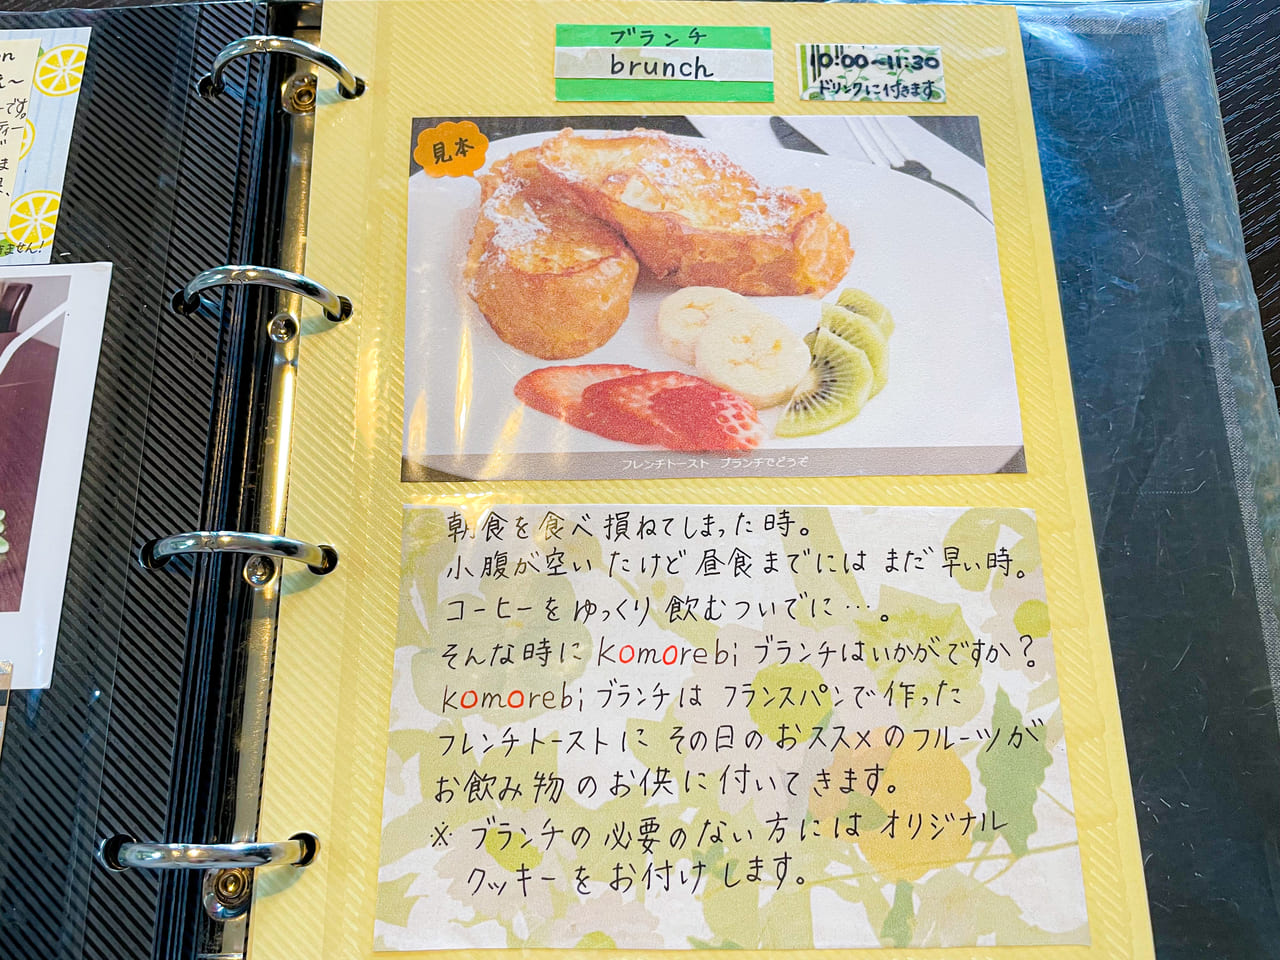 ブランチ
brunch
10:00~11:30
ドリンクに付きます
見本
フレンチトースト ブランチでどうぞ
朝食を食べ損ねてしまった時。
小腹が空いたけど昼食までにはまだ早い時。
コーヒーをゆっくり飲むついでに…。
そんな時にkomorebiブランチはいかがですか?
komorebiブランチはフランスパンで作った
フレンチトーストにその日のおススメのフルーツが
お飲み物のお供に付いてきます。
※ブランチの必要のない方にはオリジナル
クッキーをお付けします。